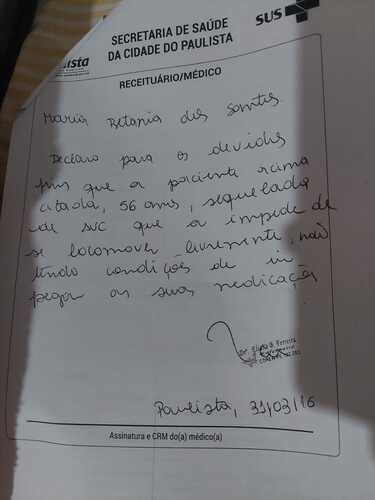 ista
SECRETARIA DE SAÚDE
DA CIDADE DO PAULISTA
SUS
RECEITUÁRIO/MÉDICO
Maria Betania dos Santos
Declaro para os devidos
fins que a paciente acima
citada, 56 anos, sequelada
de AVC que a impede de
se locomover livremente, não
tendo condições de ir
pegar as suas medicação
Paulista, 31/03/16
Assinatura e CRM do(a) médico(a)